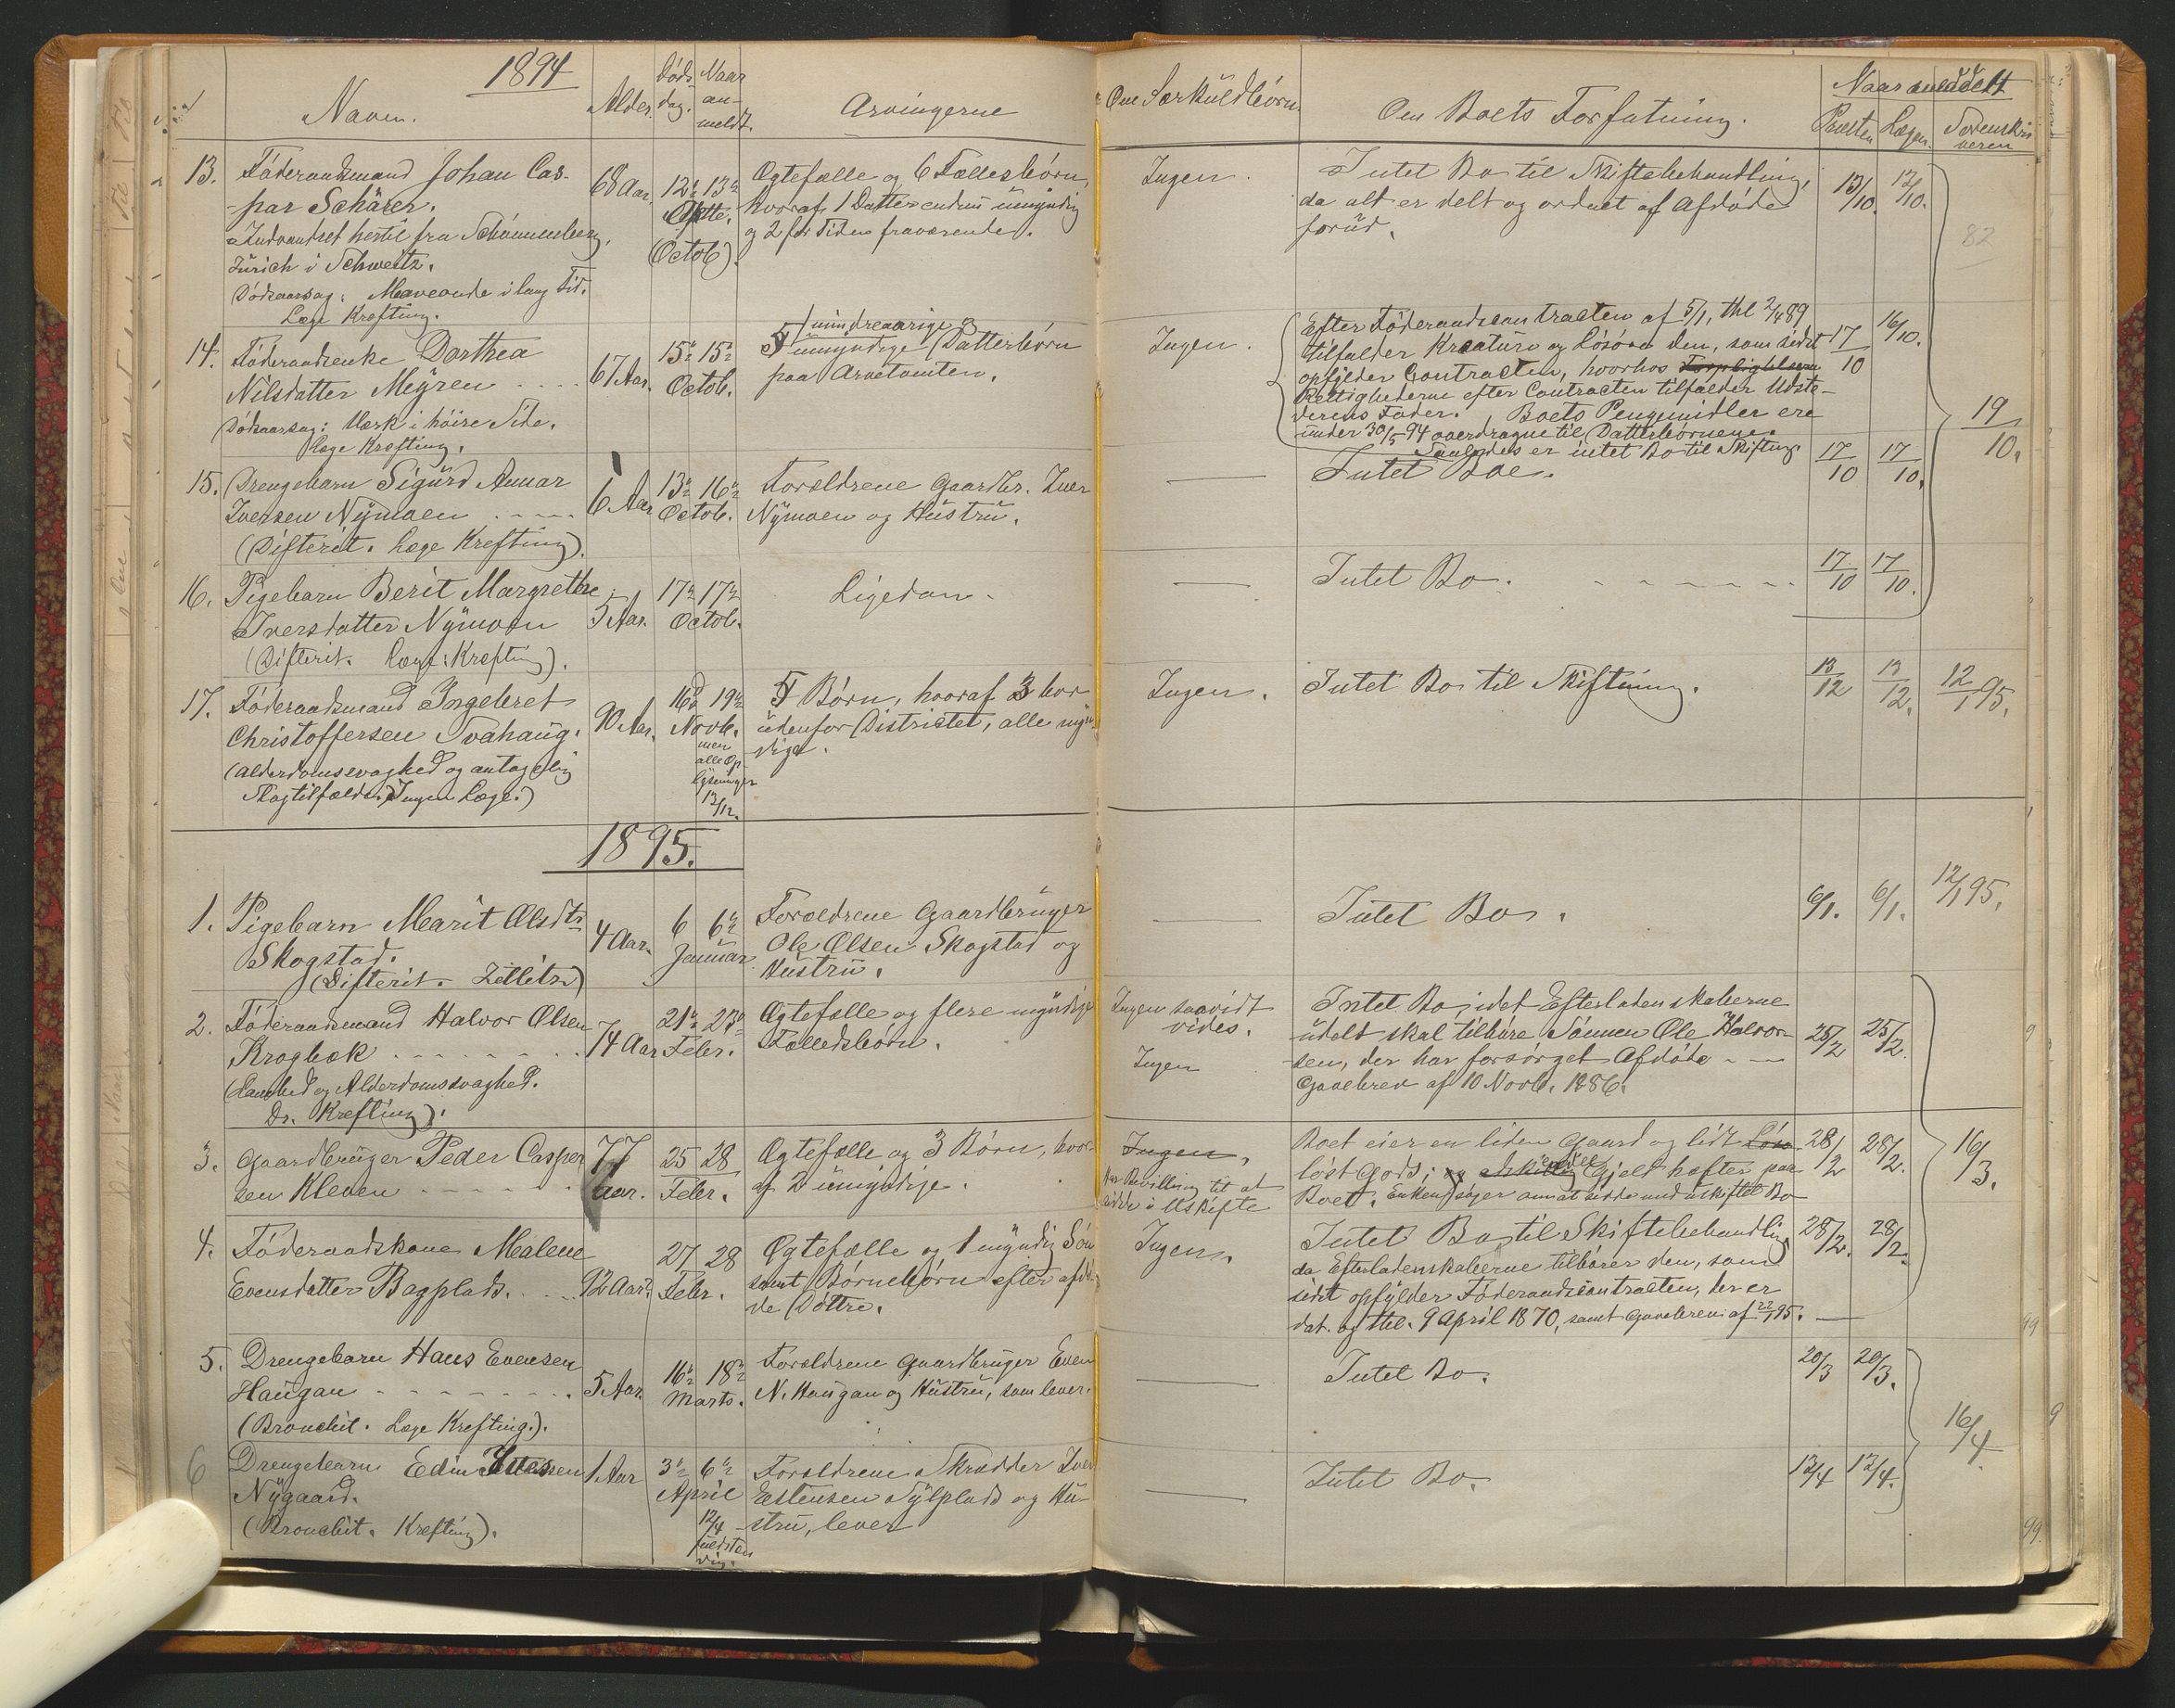 1894
Naven.
Alder.
Döds
dag.
Naar
an-
meldt.
Arvingerne
Om Særkuldbörn.
Om Boets Forfatning.
Naar meddelt
Præsten
Lægen.
Sorenskri
veren
13. Föderaadsmand Johan Cas-
par Schärer.
Indvandret hertil fra Schönnenberg,
Zürich i Schweitz.
Dödsaarsag: Maveonde i lang Tid.
Læge Krefting.
68 Aar.
12te 13de
Octob).
Ægtefælle og 6 Fællesbörn,
hvoraf 1 Datter endnu umyndig
og 2 for Tiden fraværende.
Ingen.
Intet Bo til Skiftebehandling,
da alt er delt og ordnet af Afdöde
forud.
13/10. 13/10.
82
14. Föderaadsenke Dorthea
Nilsdatter Möyren ....
Dödsaarsag: Værk i höire Side.
Læge Krefting.
67 Aar.
15de 15de
Octob.
mindreaarige &
5 umyndige Datterbörn
paa Arvetomten.
Ingen.
Efter Föderaadscontracten af 5/1, thl 2/4 89
tilfalder Kreature og Lösöre den, som sidst
opfylder Contracten, hvorhos
Rettighederne efter Contracten tilfalder Udste-
derens Fader. Boets Pengemidler ere
under 30/5 94 overdragne til Datterbörnene.
Saaledes er intet Bo til Skifting.
17/10 16/10.
19/10.
15. Drengebarn Sigurd Annar
Iversen Nymoen ....
(Difterit. Læge Krefting).
6 Aar
13de 16de
Octob.
Forældrene Gaardbr. Iver
Nymoen og Hustru.
Intet Boe.
17/10 17/10.
16. Pigebarn Berit Margrethe
Iversdatter Nymoen
(Difterit. Læge: Krefting).
5 Aar.
17de 17de
Octob.
Ligedan.
Intet Bo.
17/10 17/10.
17. Föderaadsmand Ingebret
Christoffersen Svahaug.
(Alderdomssvaghed og antagelig
Slagtilfælde. Ingen Læge.)
90 Aar.
16de 19de
Novb.
men
alle Op-
lysninger
13/12.
5 Börn, hvoraf 3 bor
udenfor Districtet, alle myn-
dige.
Ingen.
Intet Bo til Skiftning.
13/12 13/12.
12/1 95.
1895.
1. Pigebarn Marit Olsdtr
Skogstad.
(Difterit. Zillitz)
4 Aar.
6 6te
Januar
Forældrene Gaardbruger
Ole Olsen Skogstad og
Hustru.
Intet Bo.
6/1. 6/1.
12/1 95.
2. Föderaadsmand Halvor Olsen
Krogbæk ........
(Lamhed og Alderdomssvaghed.
Dr. Krefting).
74 Aar
21de 23de
Febr.
Ægtefælle og flere myndige
Fælledsbörn.
Ingen saavidt
vides.
Ingen
Intet Bo, idet Efterladenskaberne
udelt skal tilhöre Sönnen Ole Halvor-
sen, der har forsörget Afdöde --
Gavebrev af 10 Novb. 1886.
25/2 25/2.
3. Gaardbruger Peder Casper
sen Kleven ......
77
Aar.
25 28
Febr.
Ægtefælle og 3 Börn, hvor-
af 2 umyndige.
Ingen.
har Bevilling til at
sidde i Uskifte
Boet eier en liden Gaard og lidt Lös
löst Gods; endel Gjeld hæfter paa
Boet. Enken söger om at sidde med uskiftet Bo
28/2 28/2.
16/3.
4. Föderaadskone Malene
Evensdatter Bagplads. ...
92 Aar.
27 28
Febr.
Ægtefælle og 1 myndig Sön
samt Börnebörn efter afdö-
de Döttre.
Ingen.
Intet Bo til Skiftebehandling
da Efterladenskaberne tilhörer den, som
sidst opfylder Föderaadscontracten, der er
dat. og thl. 9 April 1870, samt Gavebrev af 22/1 95.
28/2. 28/2.
5. Drengebarn Hans Evensen
Haugan ........
(Bronchit. Læge Krefting.).
5 Aar.
16de 18de
Marts.
Forældrene Gaardbruger Even
N. Haugan og Hustru, som lever.
Intet Bo.
20/3 20/3.
16/4.
6 Drengebarn Edin Iversen
Nygaard.
(Bronchit. Krefting).
1 Aar
3de 6te
April
12/4
Forældrene Skrædder Iver
Estensen Sylplads og Hu-
stru, lever
Intet Bo.
12/4 12/4.